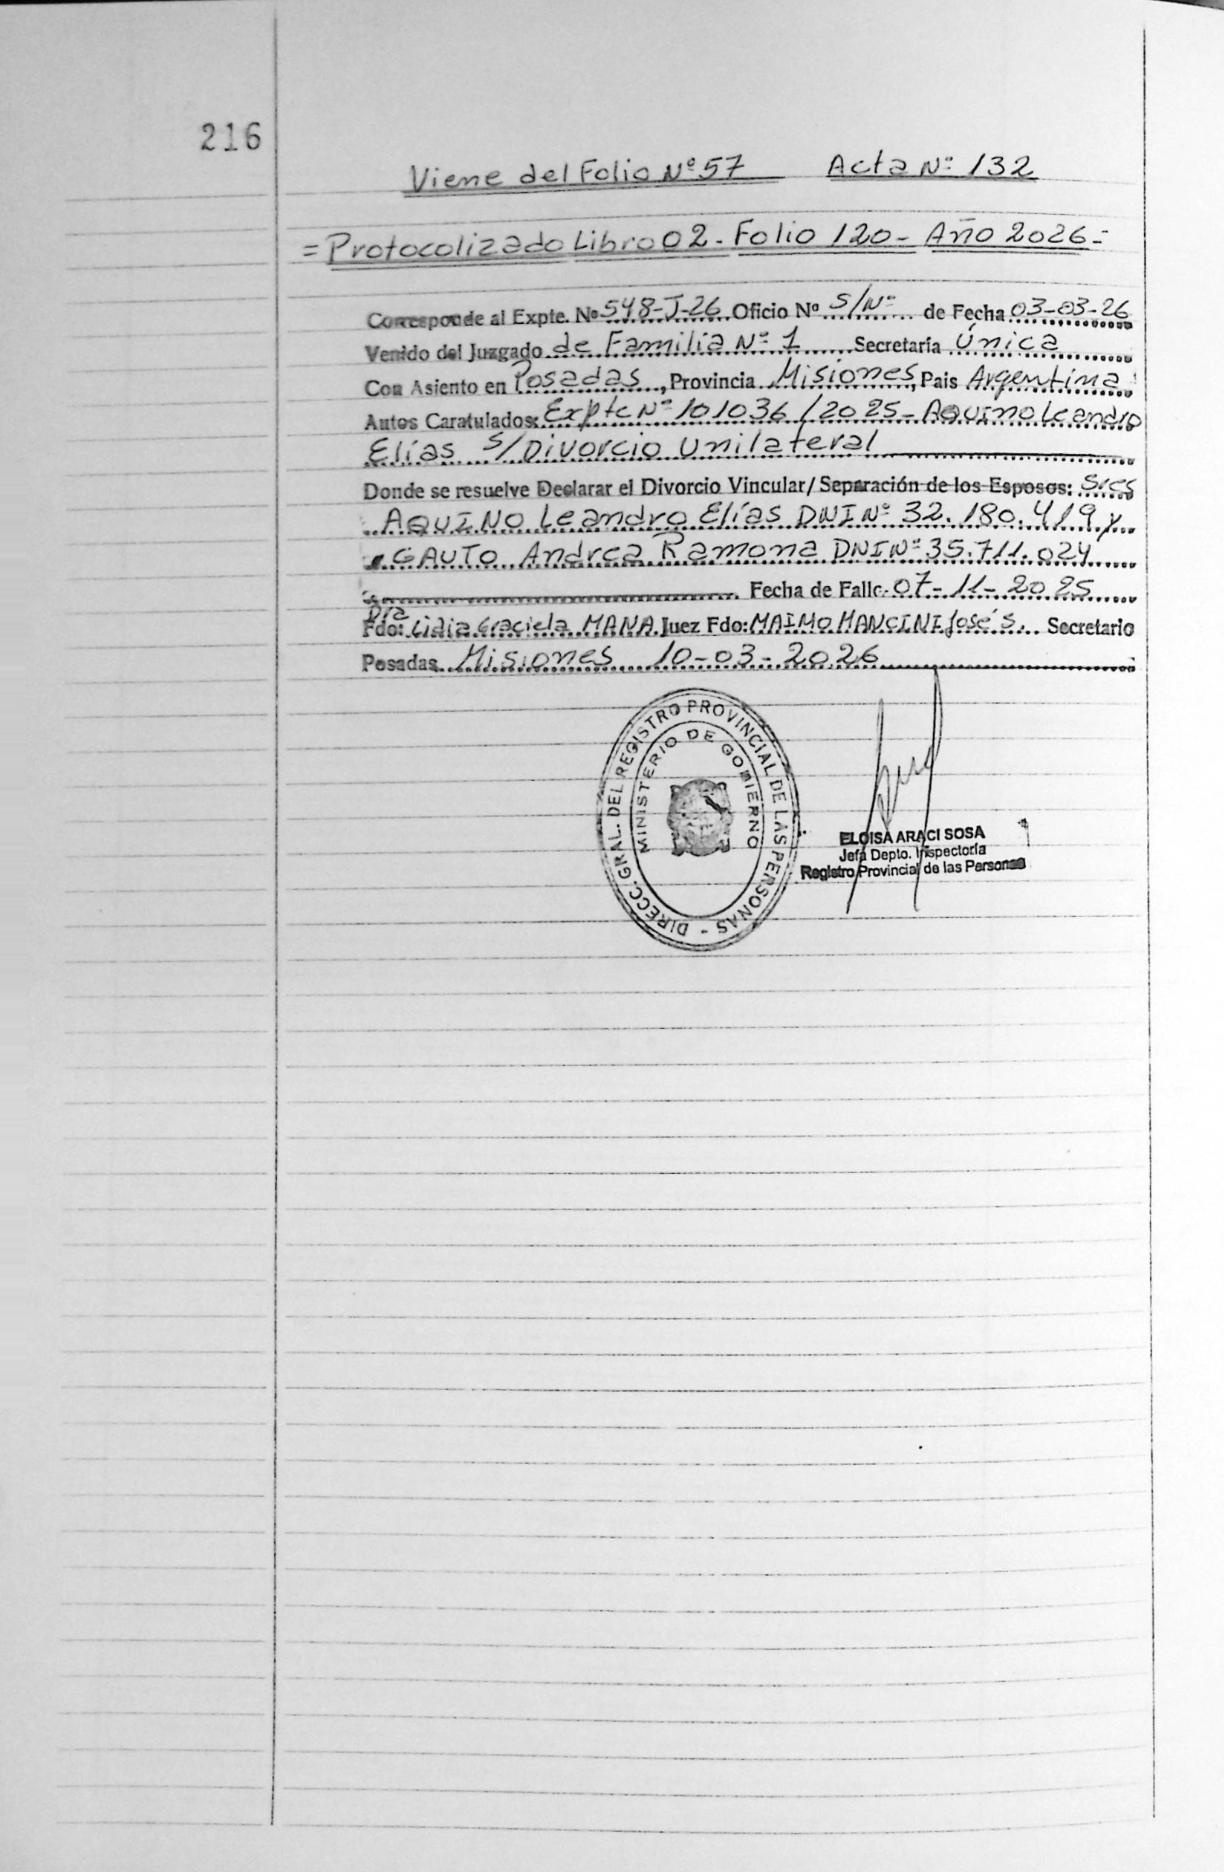 216
Viene del Folio Nº 57 Acta Nº 132
= Protocolizado Libro 02 - Folio 120 - Año 2026 =
Corresponde al Expte. Nº 548-J-26 Oficio Nº S/Nº de Fecha 03-03-26
Venido del Juzgado de Familia Nº 1 Secretaría Única
Con Asiento en Posadas, Provincia Misiones, Pais Argentina
Autos Caratulados: Expte Nº 101036/2025 - AQUINO Leandro
Elías S/ Divorcio Unilateral
Donde se resuelve Declarar el Divorcio Vincular/ Separación de los Esposos: Sres
AQUINO Leandro Elías DNI Nº 32.180.419 y
GAUTO Andrea Ramona DNI Nº 35.711.024
Fecha de Fallo 07-11-2025
Dra
Fdo: Lidia Graciela MANA Juez Fdo: MAIMO MANCINI José S. Secretario
Posadas Misiones 10-03-2026
DIRECC. GRAL. DEL REGISTRO PROVINCIAL DE LAS PERSONAS -
MINISTERIO DE GOBIERNO
ELOISA ARACI SOSA
Jefa Depto. Inspectoría
Registro Provincial de las Personas